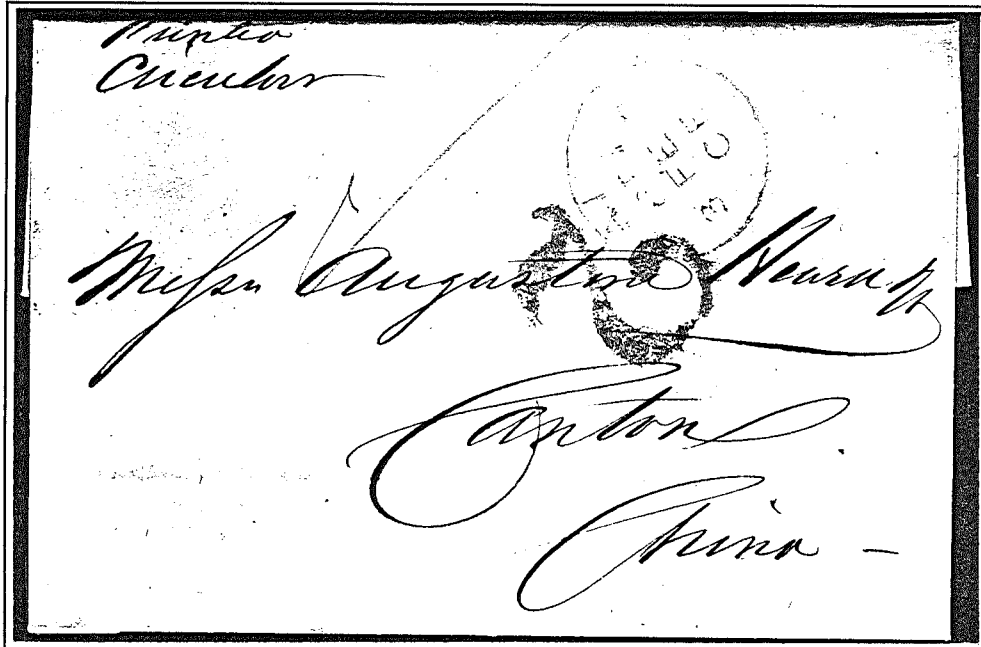 Printed
Circular
FEB
3
Messrs Augustine Heard
Canton.
China -